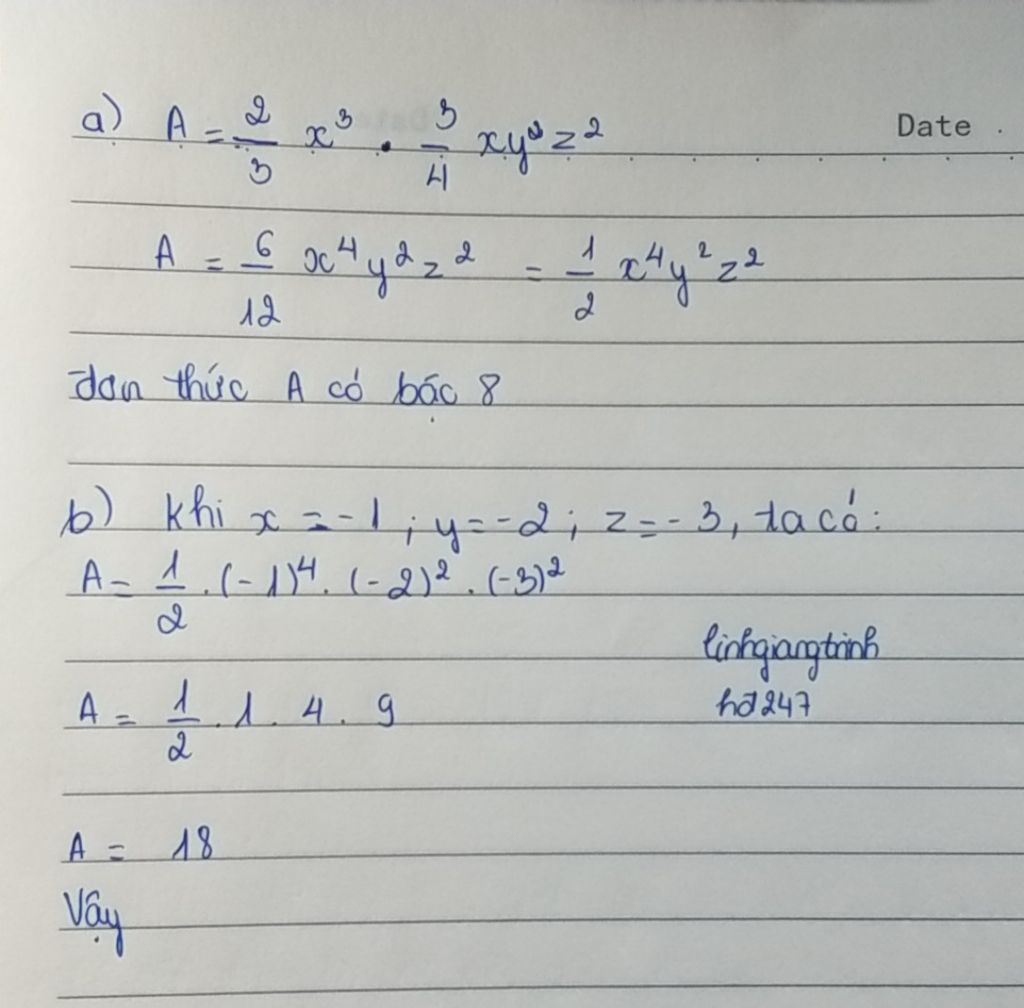 a) A = 2/3 x³ . 3/4 xy²z²
Date .
A = 6/12 x⁴y²z² = 1/2 x⁴y²z²
đơn thức A có bậc 8
b) Khi x = -1 ; y = -2 ; z = -3, ta có:
A = 1/2 . (-1)⁴ . (-2)² . (-3)²
linhgiangtrinh
A = 1/2 . 1 . 4 . 9
hđ247
A = 18
Vậy